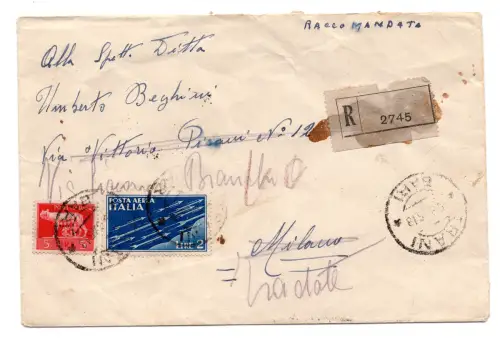 RACCOMANDATA
Alla Spett. Ditta
Umberto Beghini
Via Vittorio Pisani N° 12
Via Bianchi
R 2745
POSTA AEREA
ITALIA
LIRE 2
5
TRANI
BARI
Milano
= Tradate